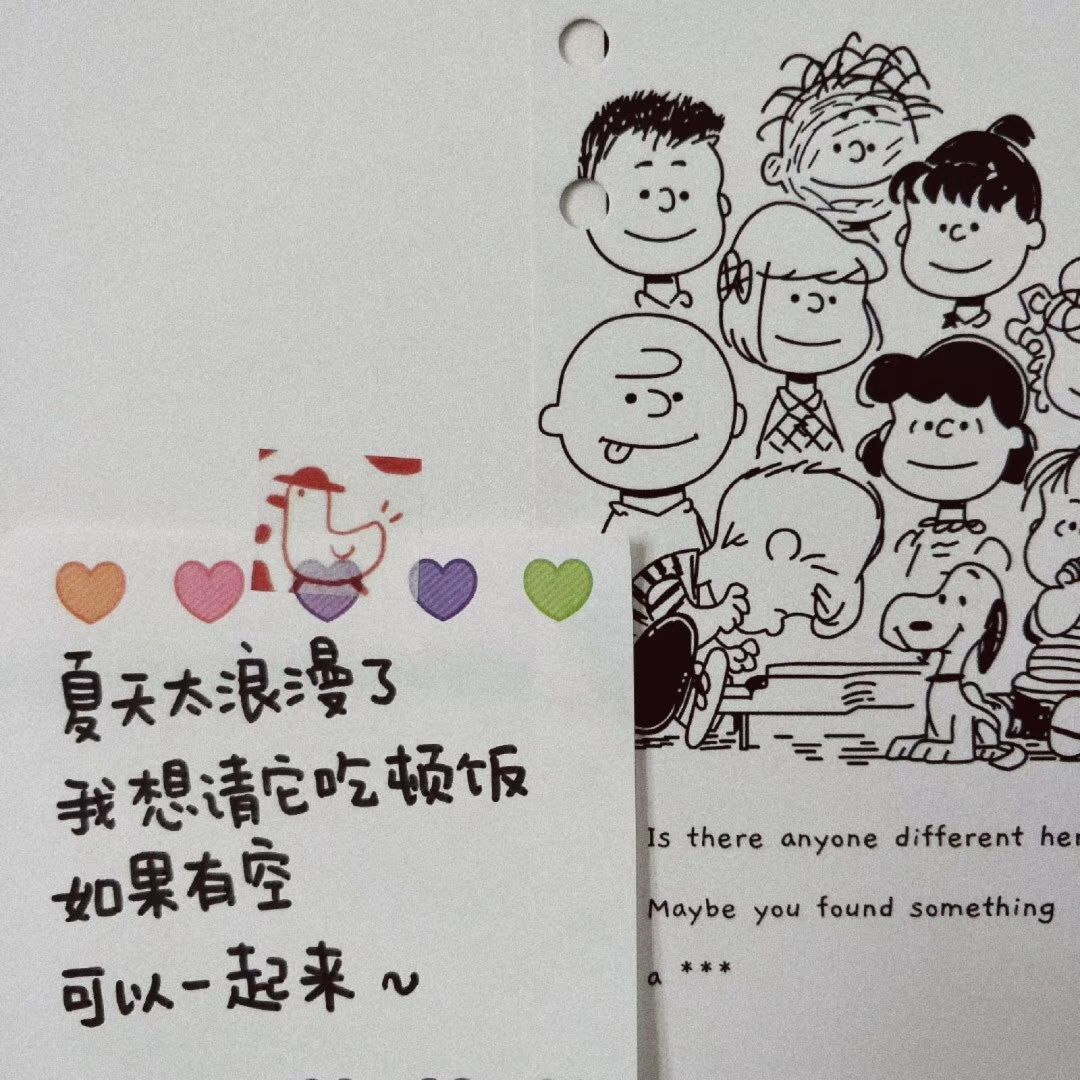 夏天太浪漫了
我想请它吃顿饭
如果有空
可以一起来～
Is there anyone different
Maybe you found something
a ***